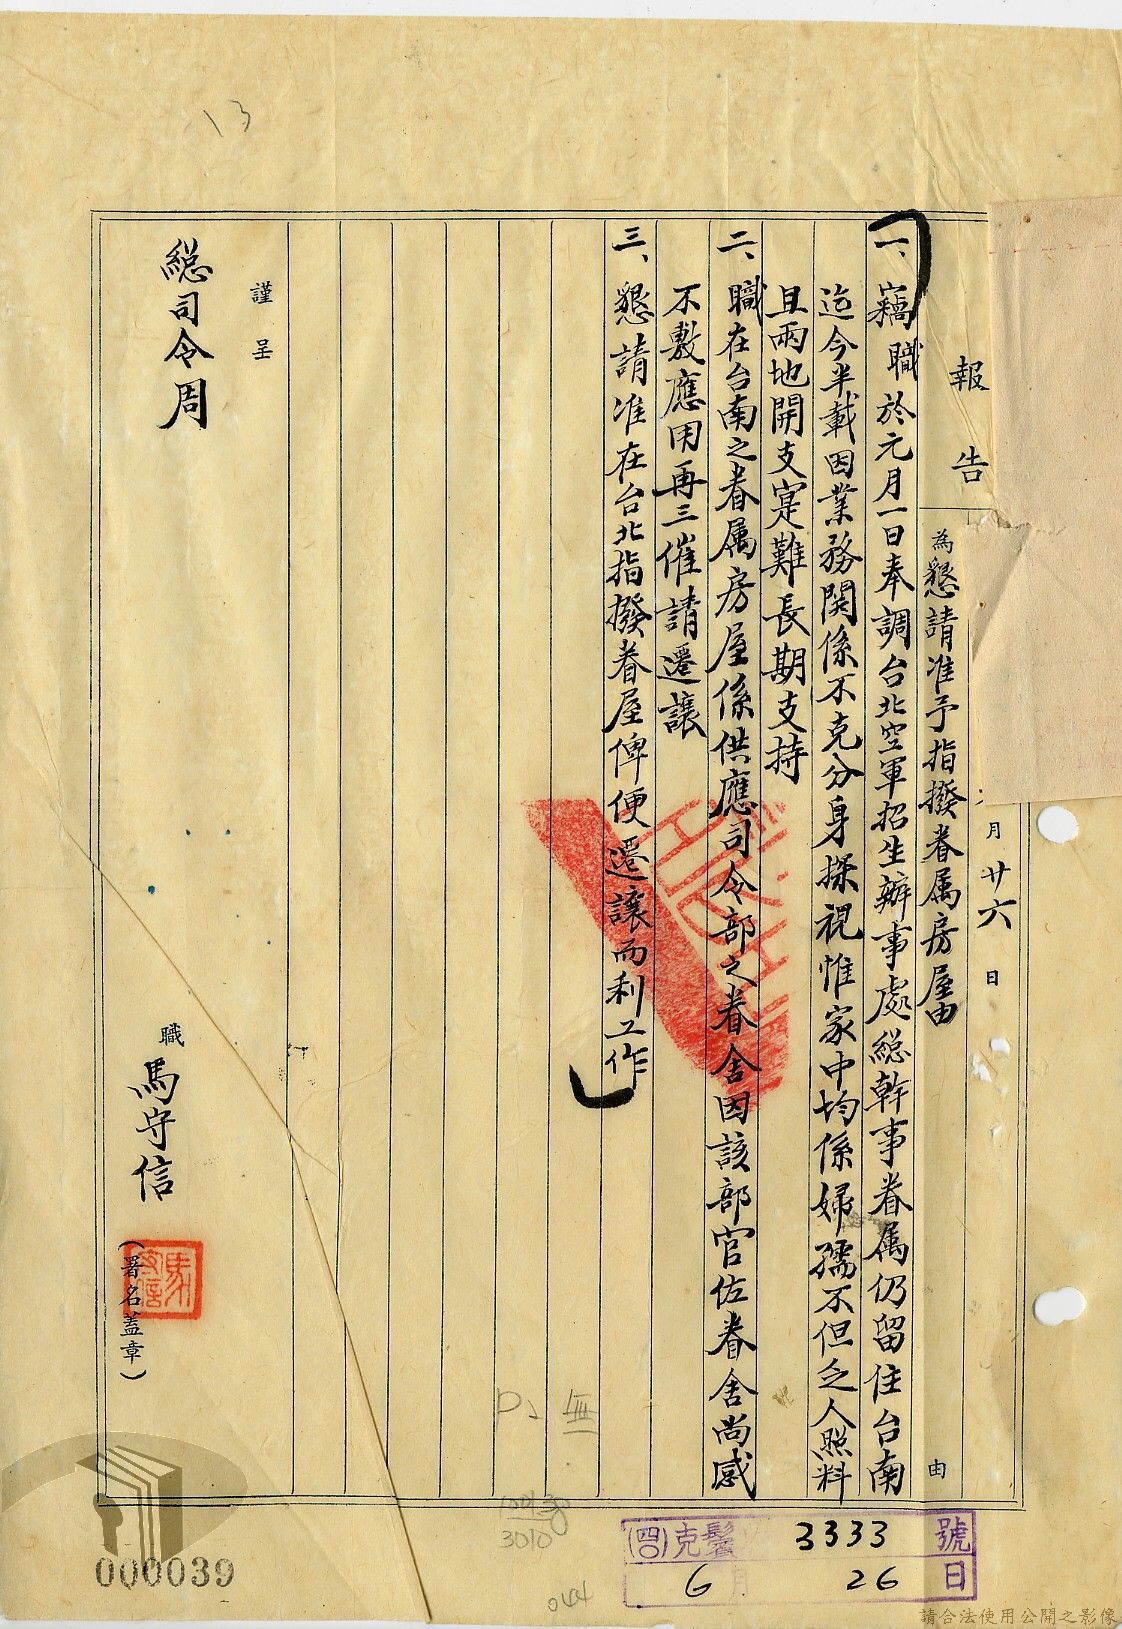 13
月廿六日
報告
為懇請准予指撥眷属房屋由
由
一、竊職於元月一日奉調台北空軍招生辦事處総幹事眷属仍留住台南
迄今半載因業務関係不克分身探視惟家中均係婦孺不但乏人照料
且兩地開支寔難長期支持
二、職在台南之眷属房屋係供應司令部之眷舍因該部官佐眷舍尚感
不敷應用再三催請遷讓
三、懇請准在台北指撥眷屋俾便遷讓而利工作
謹呈
総司令周
職馬守信
(署名盖章)
馬守信
(四0)克鬢 3333號
6月26日
3010
044
000039
請合法使用公開之影像